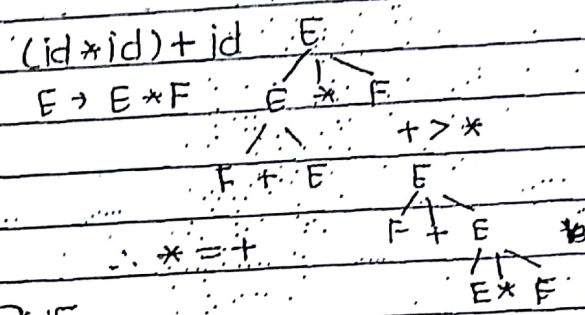 (id * id) + id E
E → E * F E * F
+ > *
F + E E
F + E
∴ * = +
E * F